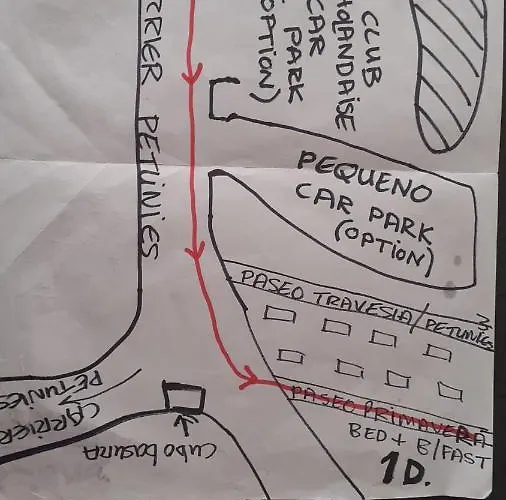 CLUB
HOLANDAISE
CAR
PARK
(OPTION)
CARRIER PETUNIES
PEQUENO
CAR PARK
(OPTION)
PASEO TRAVESIA/PETUNIES
PASEO PRIMAVERA
BED + B/FAST
1D.
CARRIER
PETUNIES
Cubo basura